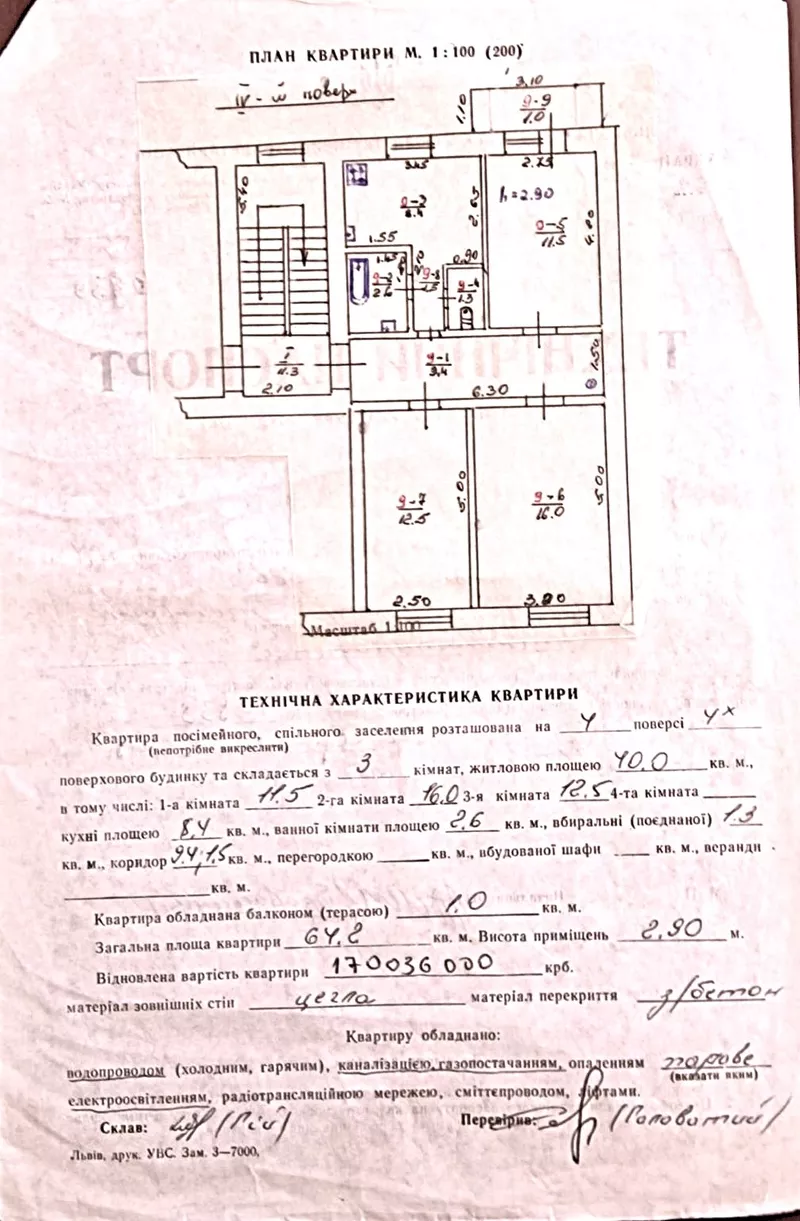 ПЛАН КВАРТИРИ М. 1 : 100 (200)
IV-й поверх
3.10
1.10
9-9
1.0
3.45
2.75
5.40
9-2
8.4
2.65
h=2.90
9-5
11.5
4.20
1.55
1.45
0.90
2.6
9-3
1.5
9-4
1.3
I
11.3
2.10
9-1
9.4
1.50
6.30
9-7
12.5
5.00
9-6
16.0
5.00
2.50
3.20
Масштаб 1:100
ТЕХНІЧНА ХАРАКТЕРИСТИКА КВАРТИРИ
Квартира посімейного, спільного заселення розташована на 4 поверсі 4х
(непотрібне викреслити)
поверхового будинку та складається з 3 кімнат, житловою площею 40.0 кв. м.,
в тому числі: 1-а кімната 11.5 2-га кімната 16.0 3-я кімната 12.5 4-та кімната
кухні площею 8,4 кв. м., ванної кімнати площею 2,6 кв. м., вбиральні (поєднаної) 1.3
кв. м., коридор 9.4, 1,5 кв. м., перегородкою кв. м., вбудованої шафи кв. м., веранди
кв. м.
Квартира обладнана балконом (терасою) 1.0 кв. м.
Загальна площа квартири 64,2 кв. м. Висота приміщень 2,90 м.
Відновлена вартість квартири 170036000 крб.
матеріал зовнішніх стін цегла матеріал перекриття з/бетон
Квартиру обладнано:
водопроводом (холодним, гарячим), каналізацією, газопостачанням, опаленням парове
(вказати яким)
електроосвітленням, радіотрансляційною мережею, сміттєпроводом, ліфтами.
Склав: Перевірив: (Головатий)
Львів, друк. УВС. Зам. 3—7000,